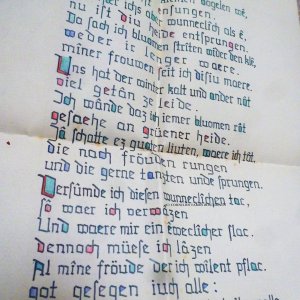 der ichs aber
wunneclich als ê,
nu ist diu heide entsprungen.
Da sach ich bluomen strîten wider den klê,
weder ir lenger waere.
mîner frouwen seit ich disiu maere.
Uns hat der winter kalt und ander nôt
viel getân ze leide.
Ich wânde daz ich iemer bluomen rôt
gesaehe an grüener heide.
Jâ schatte ez guoten liuten, waere ich tôt,
die nach fröuden rungen
und die gerne tanzten und sprungen.
Versûmde ich diesen wunneclichen tac,
sô waer ich verwâzen
Und waere mir ein eweclicher slac.
dennoch müese ich lâzen
Al mîne fröude der ich wîlent pflac.
got gesegen iuch alle: